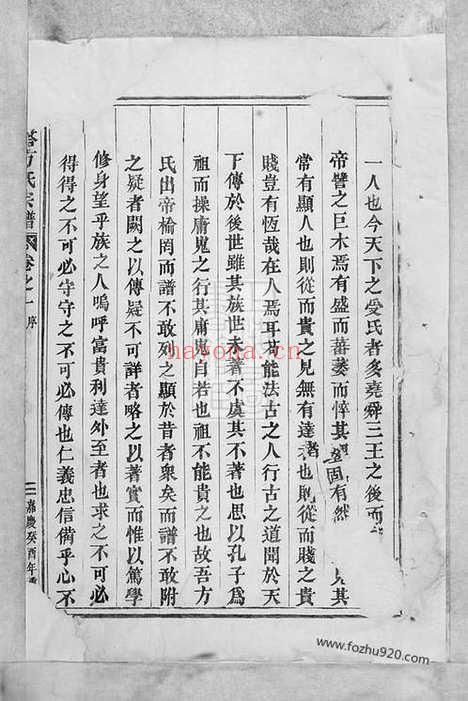 一人也今天下之受氏者多堯舜三王之後而
帝嚳之巨木焉有盛而蕃萎而悴其固有然見其
常有顯人也則從而貴之見無有達者也則從而賤之貴
賤豈有恆哉在人焉耳苟能法古之人行古之道聞於天
下傳於後世雖其族世未著不虞其不著也思以孔子為
祖而操庸鬼之行其庸鬼自若也祖不能貴之也故吾方
氏出帝榆罔而譜不敢列之顯於昔者衆矣而譜不敢附
之疑者闕之以傳疑不可詳者略之以著實而惟以篤學
修身望乎族之人嗚呼富貴利達外至者也求之不可必
得得之不可必守守之不可必傳也仁義忠信備乎心不
方氏宗譜 卷之一 序
嘉慶癸酉年
hayona.cn
www.fozhu920.com